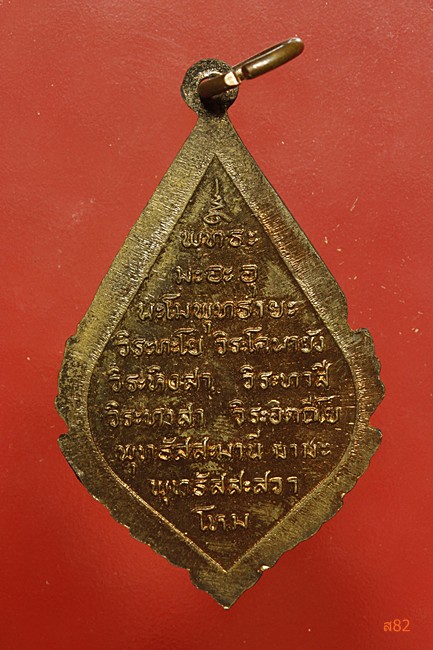 พุทธะ
มะอะอุ
นะโมพุทธายะ
วิระทะโย วิระโคนายัง
วิระหิงสา วิระทาสี
วิระทาสา วิระอิตถิโย
พุทธัสสะมานี
พุทธัสสะสวา
โหม
ส82